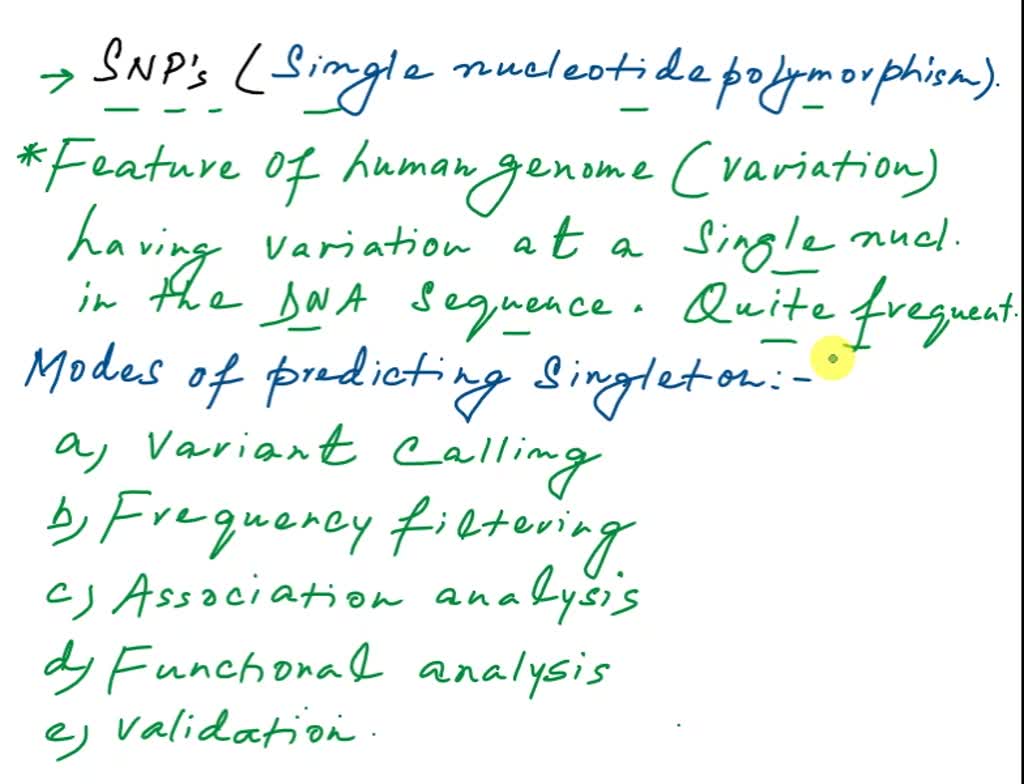 → SNP's (Single nucleotide polymorphism).
*Feature of human genome (variation)
having variation at a single nucl.
in the DNA sequence. Quite frequent.
Modes of predicting Singleton:-
a) Variant Calling
b) Frequency filtering
c) Association analysis
d) Functional analysis
e) validation.